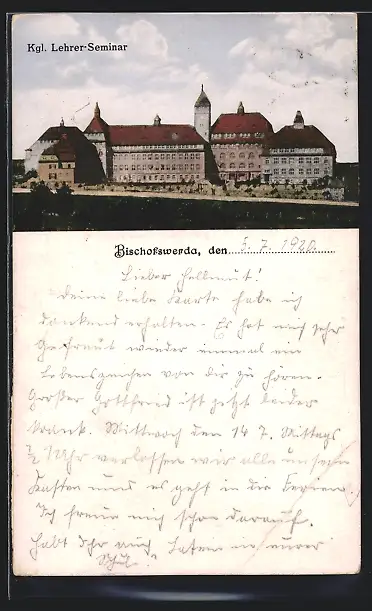 Kgl. Lehrer-Seminar
Bischofswerda, den 5. 7. 1920.
Lieber Hellmut!
Deine liebe Karte habe ich
dankend erhalten. Es hat mich sehr
gefreut wieder einmal ein
Lebenszeichen von dir zu hören.
Großer Gottfried ist jetzt leider
krank. Mittwoch den 14. 7. Mittags
½ 1 Uhr verlassen wir alle unsern
Kasten und es geht in die Ferien.
Ich freue mich schon darauf.
Habt Ihr auch in eurer
Schul.